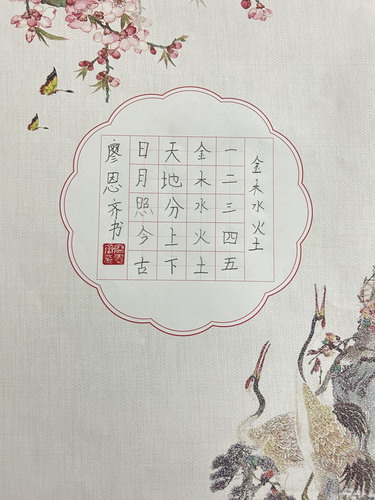 金木水火土
一二三四五
金木水火土
天地分上下
日月照今古
廖恩齐书